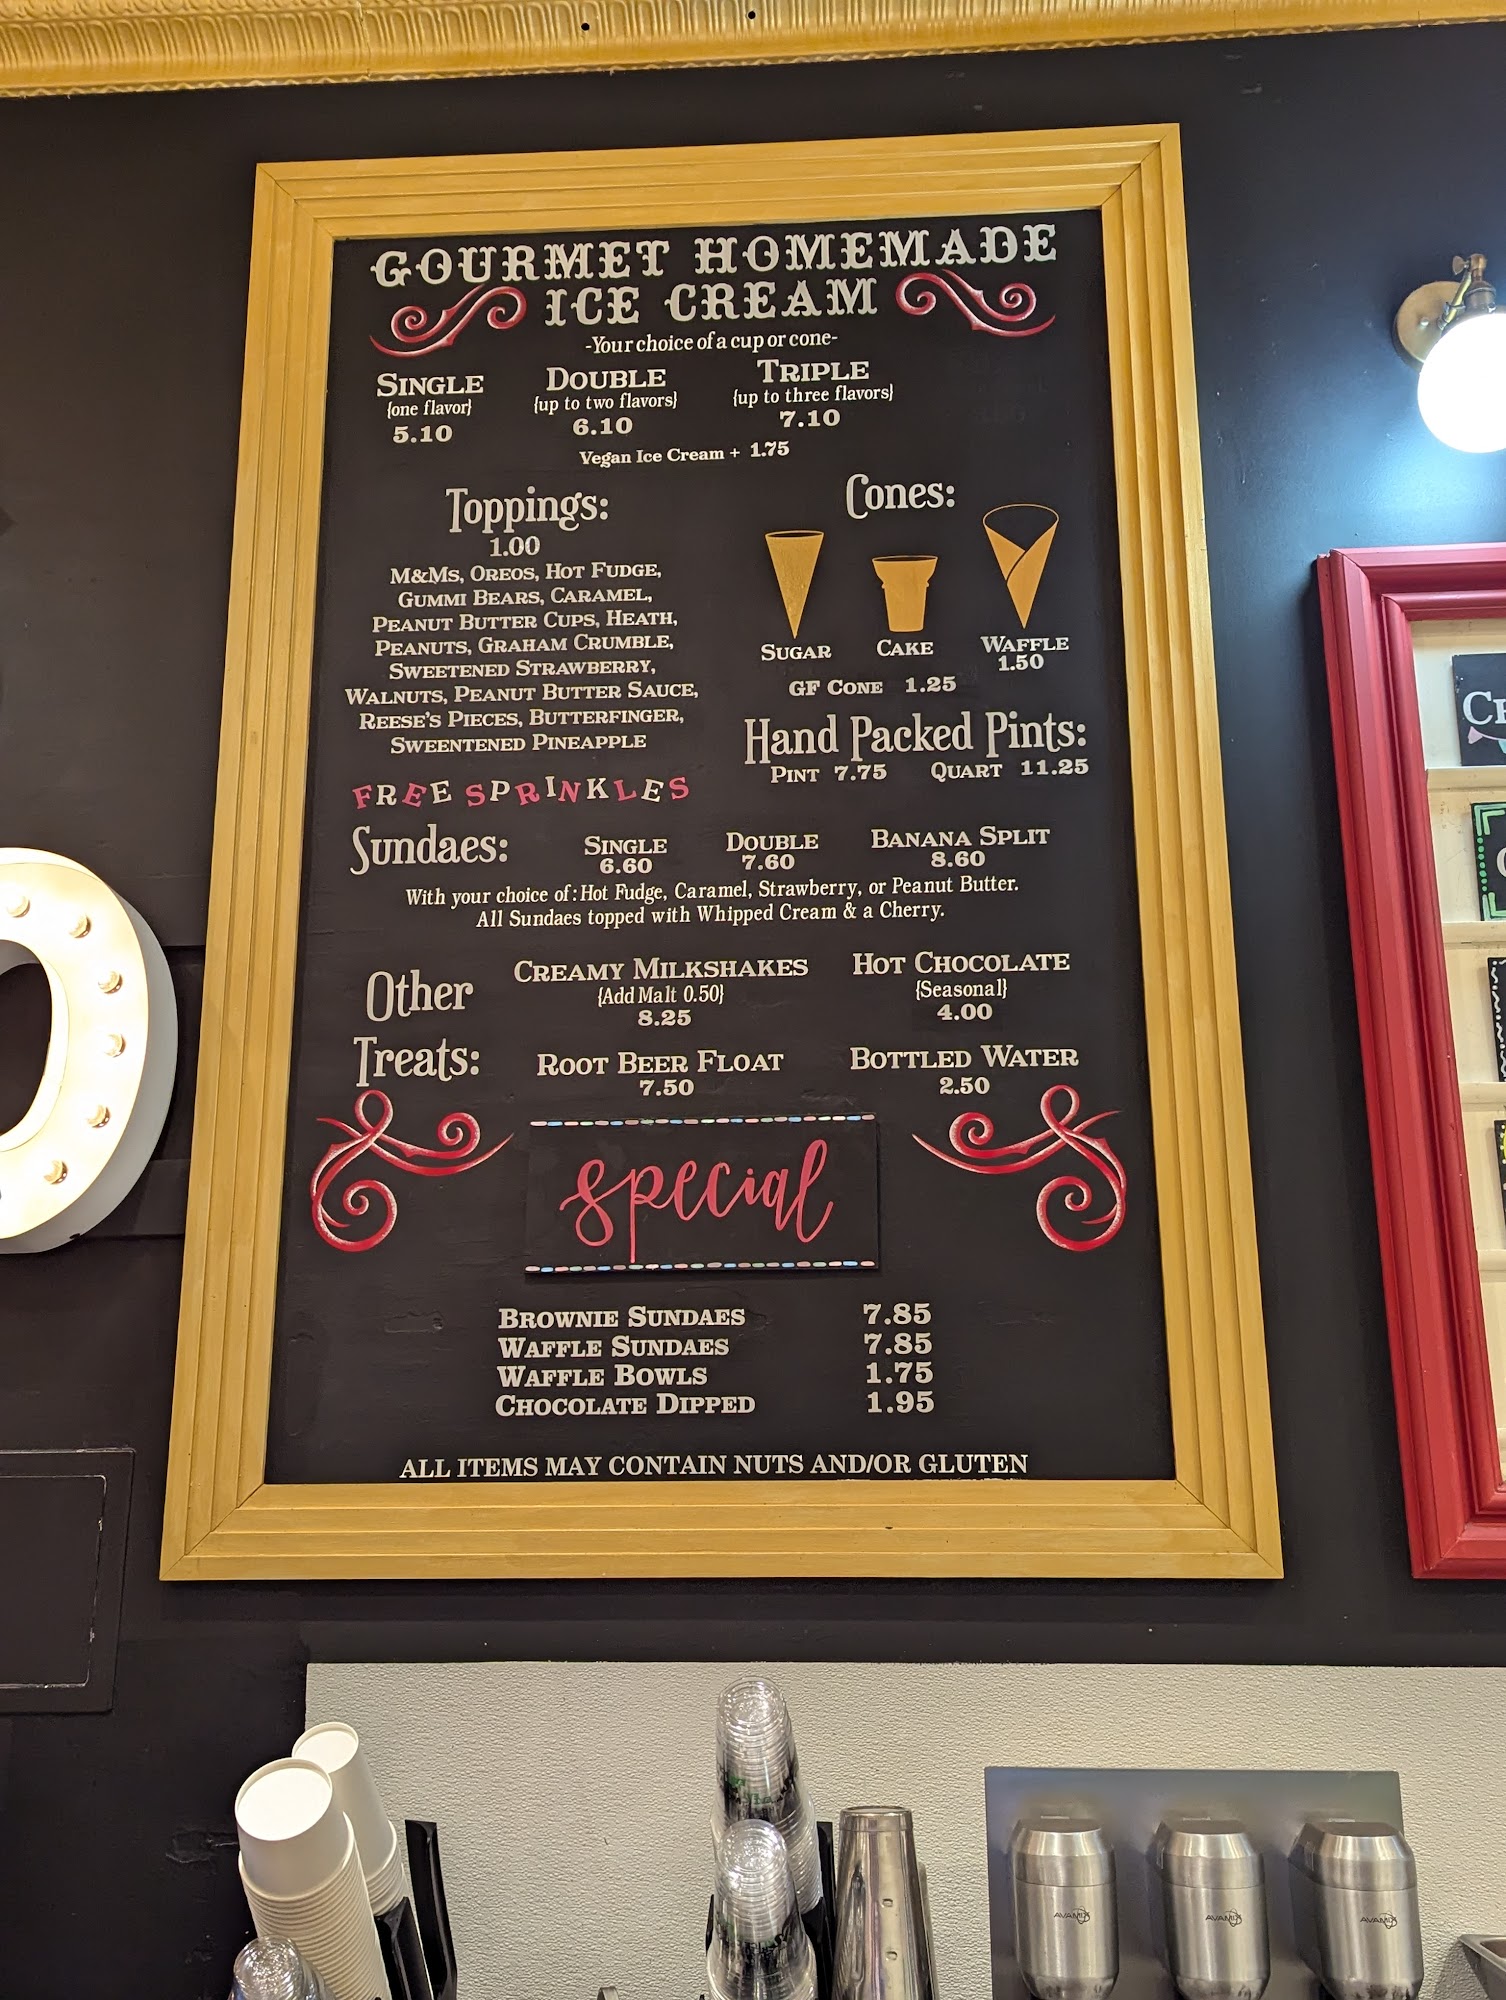 GOURMET HOMEMADE
ICE CREAM
-Your choice of a cup or cone-
SINGLE
{one flavor}
5.10
DOUBLE
{up to two flavors}
6.10
TRIPLE
{up to three flavors}
7.10
Vegan Ice Cream + 1.75
Toppings:
1.00
M&MS, OREOS, HOT FUDGE,
GUMMI BEARS, CARAMEL,
PEANUT BUTTER CUPS, HEATH,
PEANUTS, GRAHAM CRUMBLE,
SWEETENED STRAWBERRY,
WALNUTS, PEANUT BUTTER SAUCE,
REESE'S PIECES, BUTTERFINGER,
SWEENTENED PINEAPPLE
FREE SPRINKLES
Cones:
SUGAR
CAKE
WAFFLE
1.50
GF CONE 1.25
Hand Packed Pints:
PINT 7.75 QUART 11.25
Sundaes:
SINGLE
6.60
DOUBLE
7.60
BANANA SPLIT
8.60
With your choice of: Hot Fudge, Caramel, Strawberry, or Peanut Butter.
All Sundaes topped with Whipped Cream & a Cherry.
Other
Treats:
CREAMY MILKSHAKES
{Add Malt 0.50}
8.25
HOT CHOCOLATE
{Seasonal}
4.00
ROOT BEER FLOAT
7.50
BOTTLED WATER
2.50
special
BROWNIE SUNDAES 7.85
WAFFLE SUNDAES 7.85
WAFFLE BOWLS 1.75
CHOCOLATE DIPPED 1.95
ALL ITEMS MAY CONTAIN NUTS AND/OR GLUTEN
AVAMIX
AVAMIX
AVAMIX